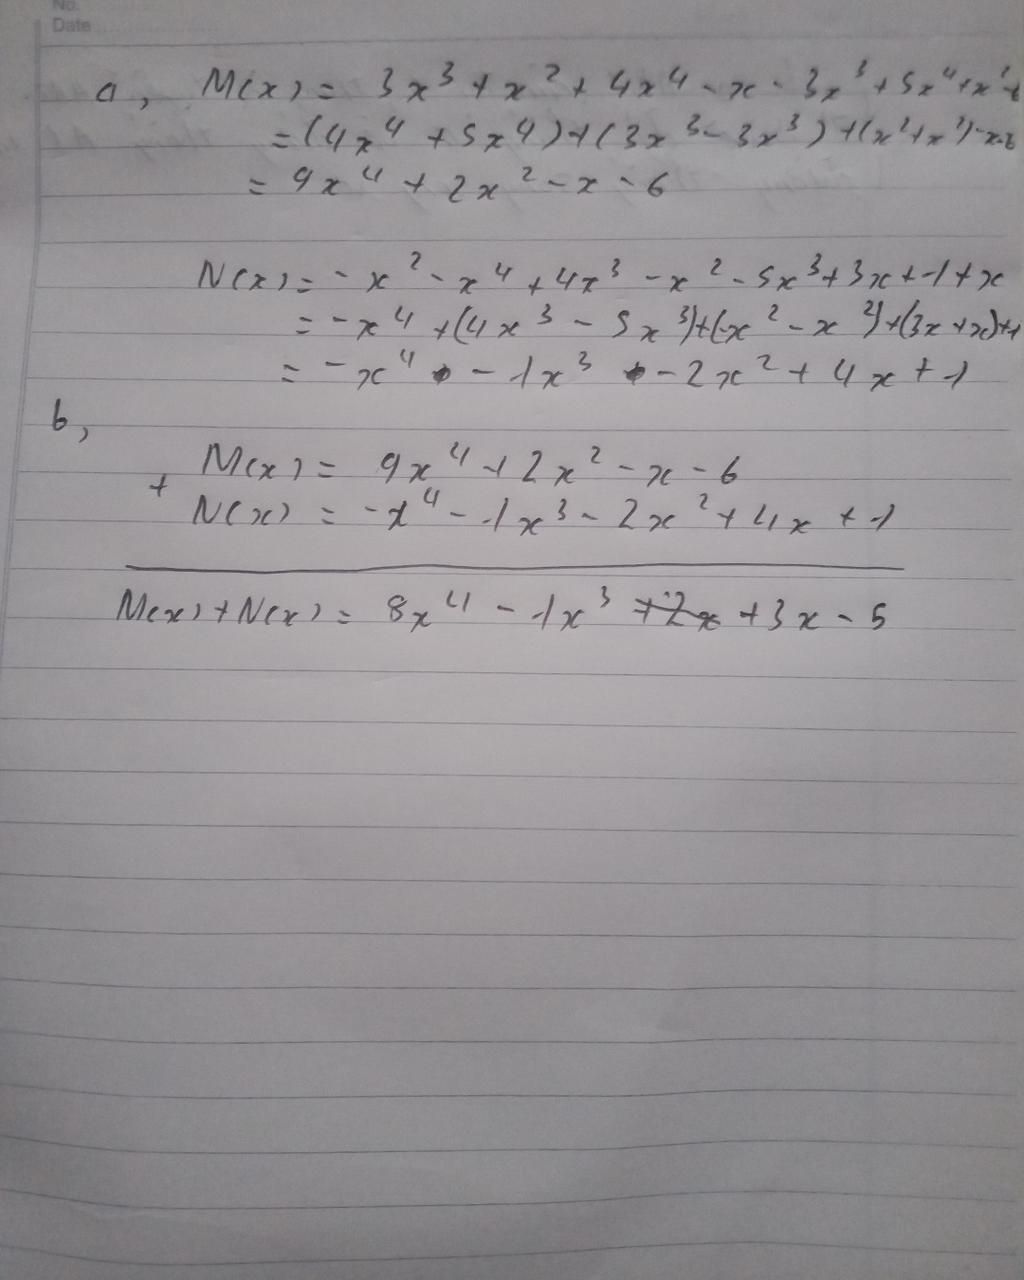 No.
Date
a, M(x) = 3x³ + x² + 4x⁴ - x - 3x³ + 5x⁴ + x² - 6
= (4x⁴ + 5x⁴) + (3x³ - 3x³) + (x² + x²) - x - 6
= 9x⁴ + 2x² - x - 6
N(x) = - x² - x⁴ + 4x³ - x² - 5x³ + 3x + 1 + x
= - x⁴ + (4x³ - 5x³) + (-x² - x²) + (3x + x) + 1
= - x⁴ - 1x³ - 2x² + 4x + 1
b,
M(x) = 9x⁴ + 2x² - x - 6
+
N(x) = -x⁴ - 1x³ - 2x² + 4x + 1
M(x) + N(x) = 8x⁴ - 1x³ + 3x - 5